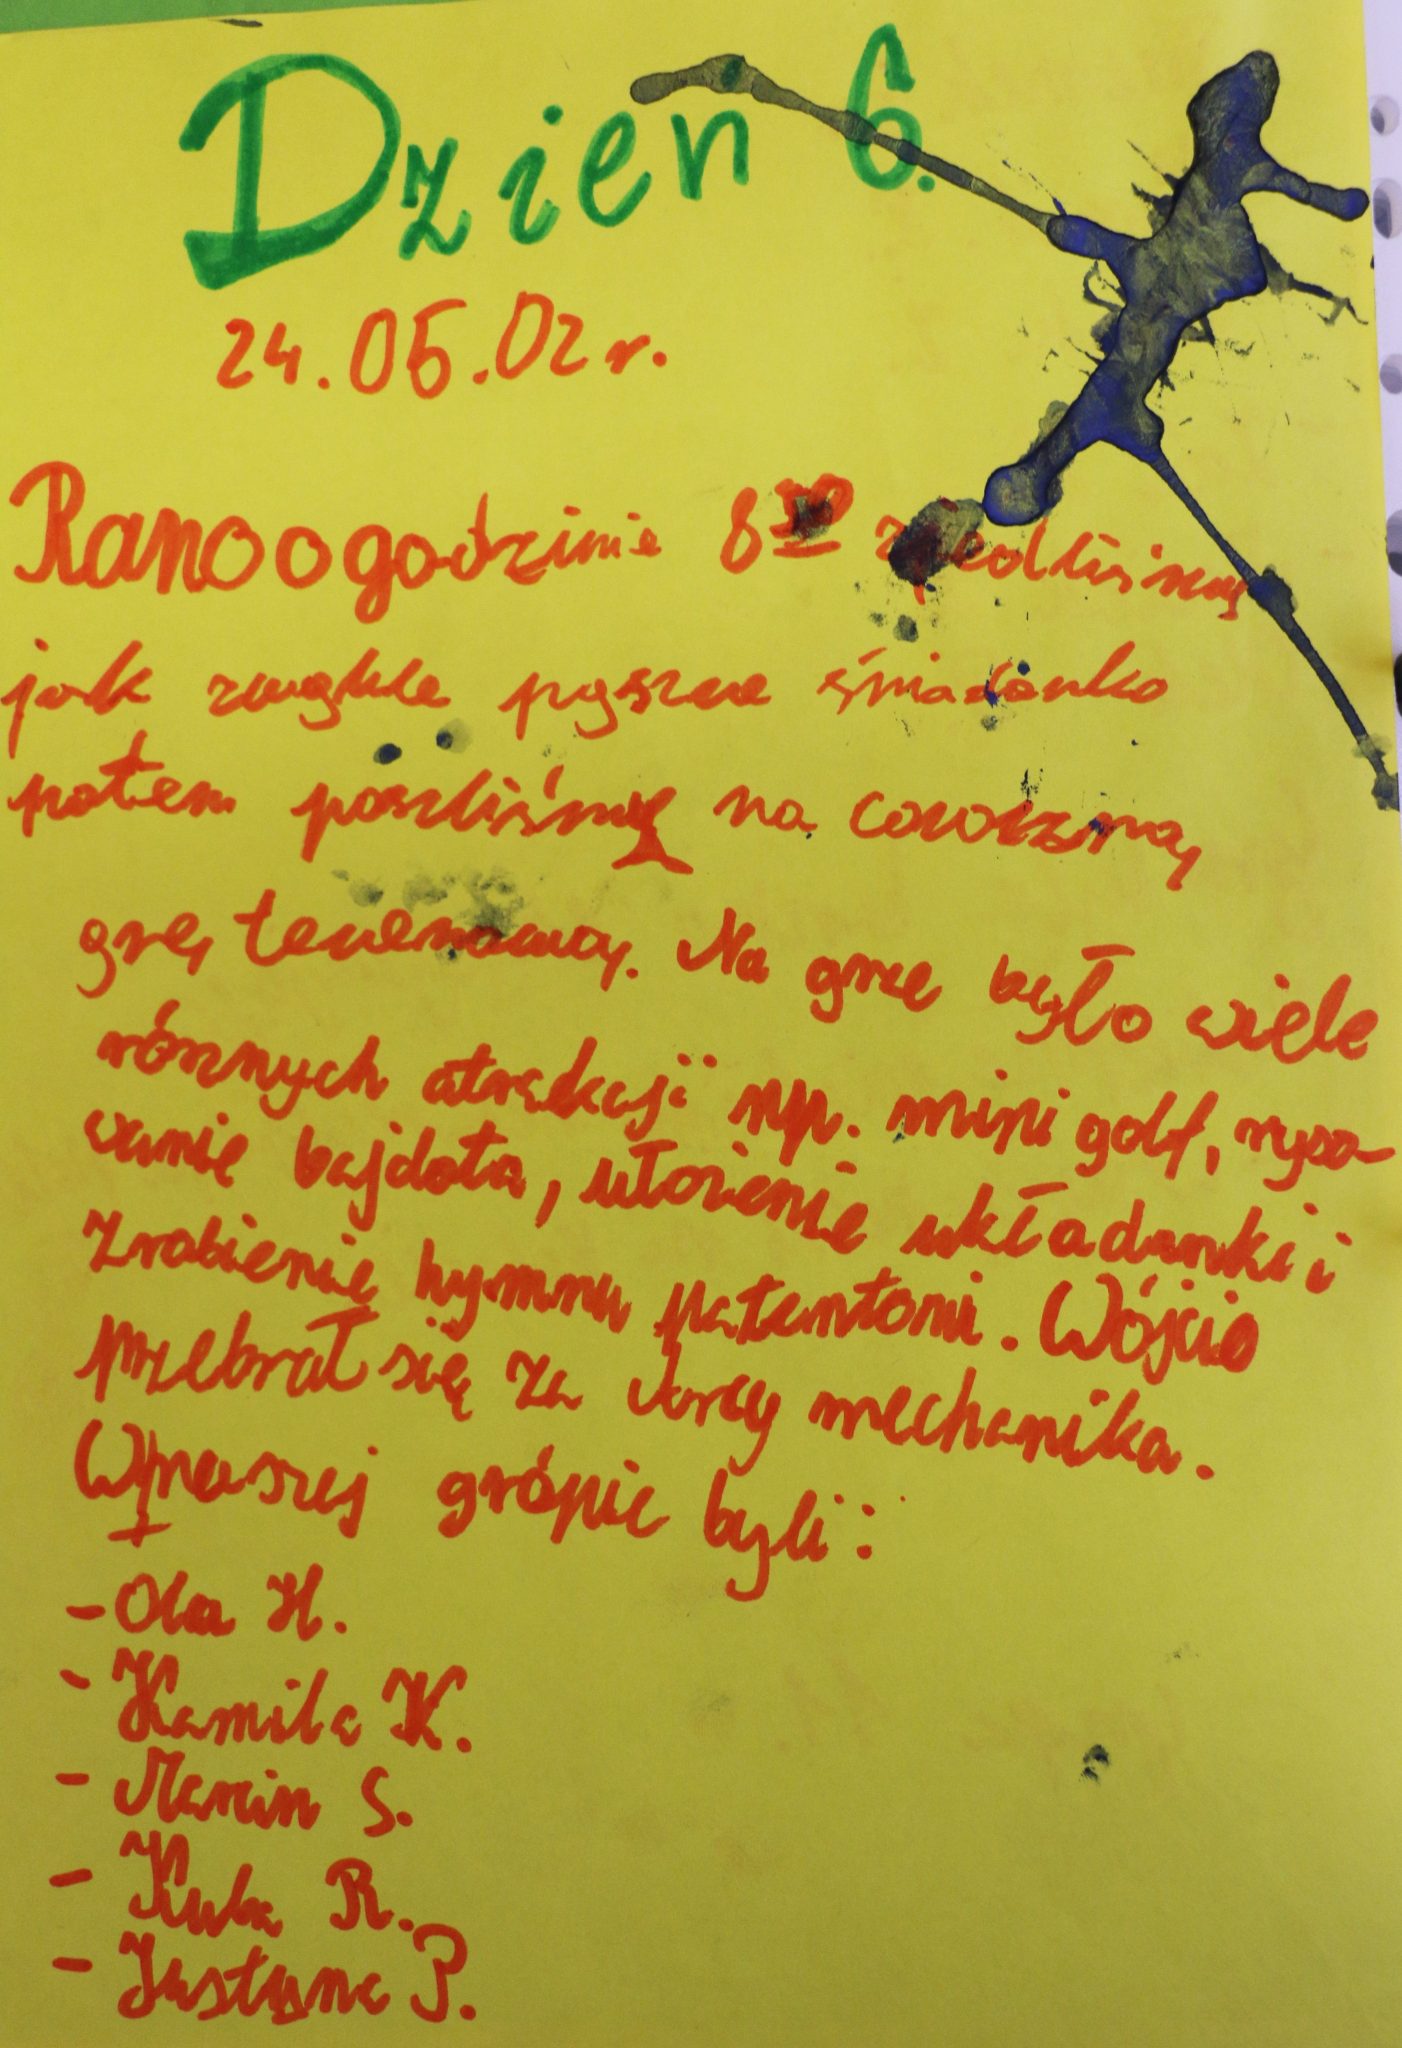 Dzien 6.
24.05.02 r.
Rano o godzinie 8³⁰ zjedliśmy
jak zwykle pyszne śniadanko
potem poszliśmy na coroczną
grę terenową. Na grze było wiele
róznych atrakcji np. mini golf, ryso-
wanie bajdota, ułorzenie układanki i
zrobienie hymnu patentoni. Wójcio
przebrał się za mechanika.
W naszej grópie byli:
- Ola H.
- Kamila K.
- Marcin S.
- Kuba R.
- Justyna P.